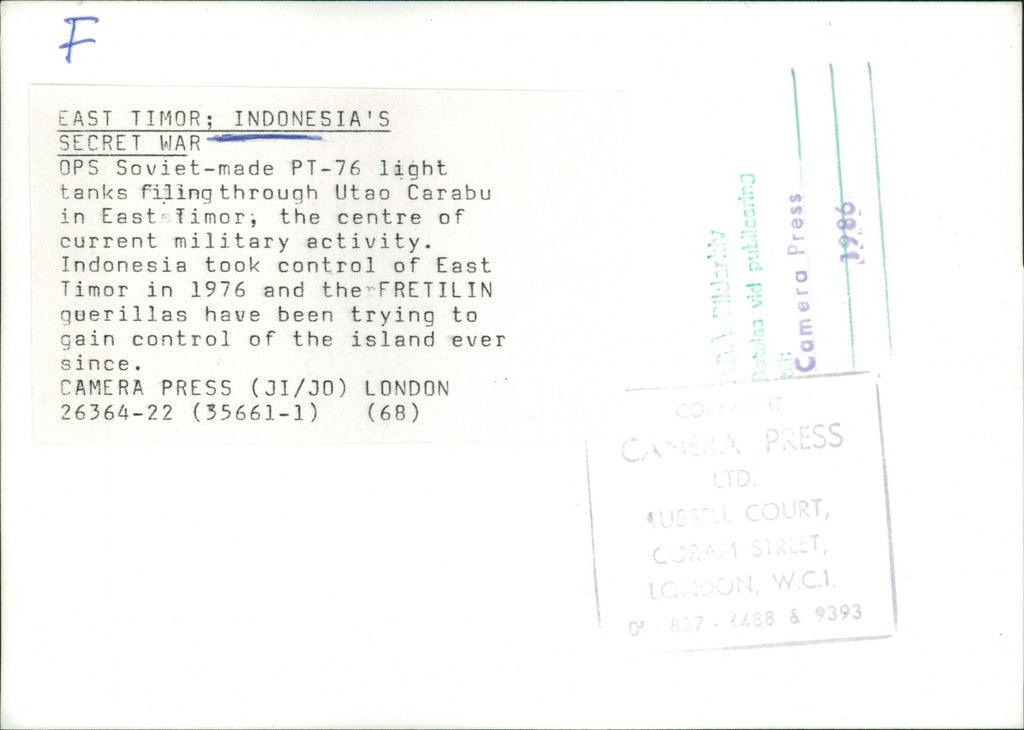 F
EAST TIMOR; INDONESIA'S
SECRET WAR
OPS Soviet-made PT-76 light
tanks filing through Utao Carabu
in East Timor, the centre of
current military activity.
Indonesia took control of East
Timor in 1976 and the FRETILIN
guerillas have been trying to
gain control of the island ever
since.
CAMERA PRESS (JI/JO) LONDON
26364-22 (35661-1) (68)
Bildarkiv
vid publicering
Camera Press
1986
COPYRIGHT
CAMERA PRESS
LTD.
RUSSELL COURT,
CORAM STREET,
LONDON, W.C.1.
837 - 4488 & 9393